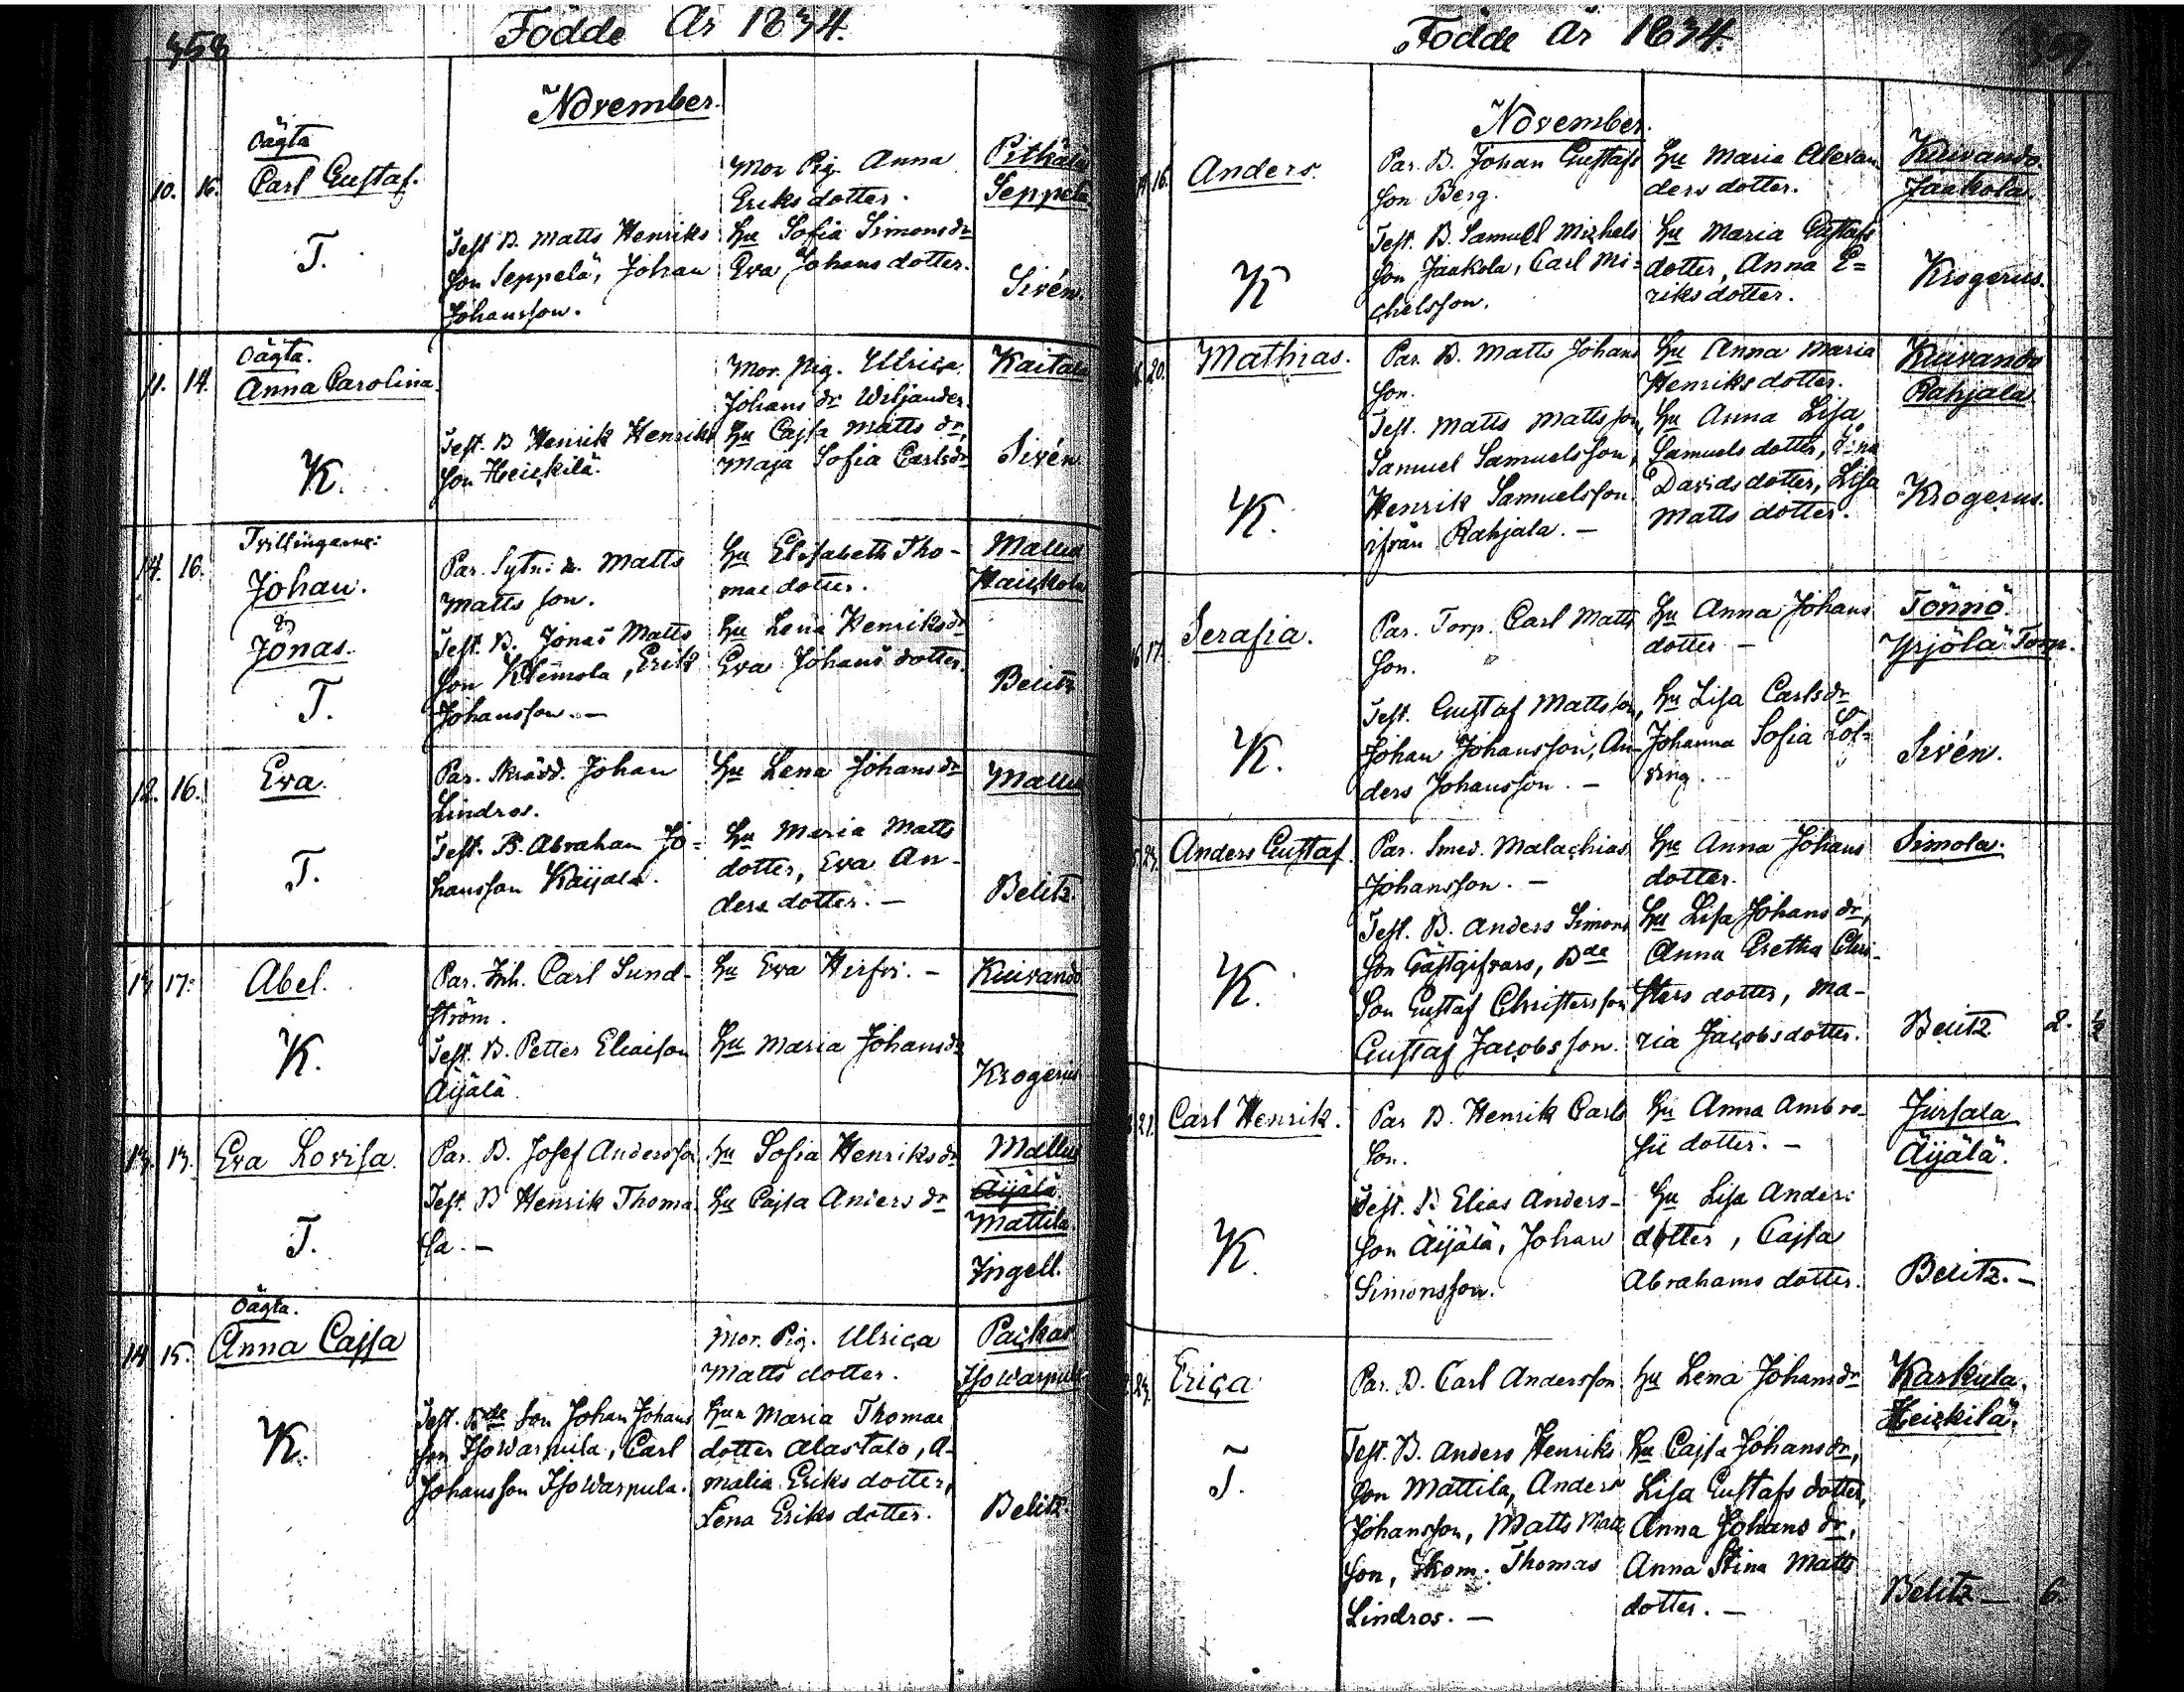 358
Födde År 1834.
November.
Oägta
10. 16. Carl Gustaf.
T.
Mor Pig. Anna
Eriksdotter.
Test B. Matts Henriks
son Seppelä, Johan
Johansson.
Hu Sofia Simonsdr
Eva Johansdotter.
Seppelä
Sirén.
Oägta.
11. 14. Anna Carolina.
K.
Mor. Pig. Ulrica
Johansdr Wiljander.
Test. B Henrik Henriks
son Heickilä.
Hu Cajsa Matts dr,
Maja Sofia Carlsdr
Sirén.
Tvillingarne:
14. 16. Johan.
&
Jonas.
T.
Par. Sytn: Matts
Mattsson.
Test. B. Jonas Matts
son Klemola, Erik
Johansson. —
Hu Elisabeth Tho-
mae dotter.
Hu Lena Henriksdr
Eva Johans dotter.
Mallus
Haickola
Belitz
12. 16. Eva.
T.
Par. Skrädd. Johan
Lindros.
Test. B. Abraham Jo-
hansson Käijälä.
Hu Lena Johansdr
Hu Maria Matts
dotter, Eva An-
ders dotter. —
Mallus
Belitz.
17. Abel.
K.
Par. Inh. Carl Sund-
ström.
Test. B. Petter Eliaison
Äijälä
Hu Eva Hirfvi. —
Hu Maria Johansdr
Kuivando
Krogerius
13. 17. Eva Lovisa.
T.
Par. B. Josef Andersson
Test. B Henrik Thoma
la. —
Hu Sofia Henriksdr
Hu Cajsa Anders dr
Mallus
Äijälä
Mattila.
Ingell.
Oägta.
14 15. Anna Cajsa
K.
Mor. Pig. Ulrica
Matts dotter.
Test. Bde Son Johan Johans
son Isowarpula, Carl
Johansson Isowarpula.
Hun Maria Thomae
dotter Alastalo, A-
malia Eriks dotter,
Lena Eriks dotter.
Packas
Isowarpula
Belitz.
Födde År 1834.
359.
November.
16. Anders.
K
Par. B. Johan Gustafs
son Berg.
Test. B. Samuel Michels
son Jaakola, Carl Mi-
chelsson.
Hu Maria Alexan
ders dotter.
Hu Maria Gustafs
dotter, Anna E-
riksdotter.
Kuivando.
Jaakola.
Krogerius.
20. Mathias.
K.
Par. B. Matts Johans
son.
Test. Matts Mattsson,
Samuel Samuelsson,
Henrik Samuelsson
ifrån Rahjala. —
Hu Anna Maria
Henriksdotter.
Hu Anna Lisa
Samuelsdotter,
Davidsdotter, Lisa
Matts dotter.
Kuivando
Rahjala
Krogerius.
17. Serafia.
K.
Par. Torp. Carl Matts
son.
Test. Gustaf Mattsson,
Johan Johansson, An-
ders Johansson. —
Hu Anna Johans
dotter —
Hu Lisa Carlsdr
Johanna Sofia Löf-
ving.
Tönnö.
Yrjölä Torp.
Sirén.
23. Anders Gustaf.
K.
Par. Smed. Malachias
Johansson. —
Test. B. Anders Simons
son Gästgifvars, Bde
Son Gustaf Christersson
Gustaf Jacobsson.
Hu Anna Johans
dotter.
Hu Lisa Johans dr,
Anna Gretha Chri-
sters dotter, Ma-
ria Jacobsdotter.
Simola.
Belitz 2. 1/2
21. Carl Henrik.
K.
Par B. Henrik Carls
son.
Test. B Elias Anders-
son Äijälä, Johan
Simonsson.
Hu Anna Ambro-
sii dotter. —
Hu Lisa Anders
dotter, Cajsa
Abrahams dotter.
Jursala
Äijälä.
Belitz. —
23. Erica
T.
Par. B. Carl Andersson
Test. B. Anders Henriks
son Mattila, Anders
Johansson, Matts Matts
son, Skom: Thomas
Lindros. —
Hu Lena Johansdr
Hu Cajsa Johansdr,
Lisa Gustafs dotter,
Anna Johans dr,
Anna Stina Matts
dotter. —
Karkula.
Heickilä.
Belitz — 6.